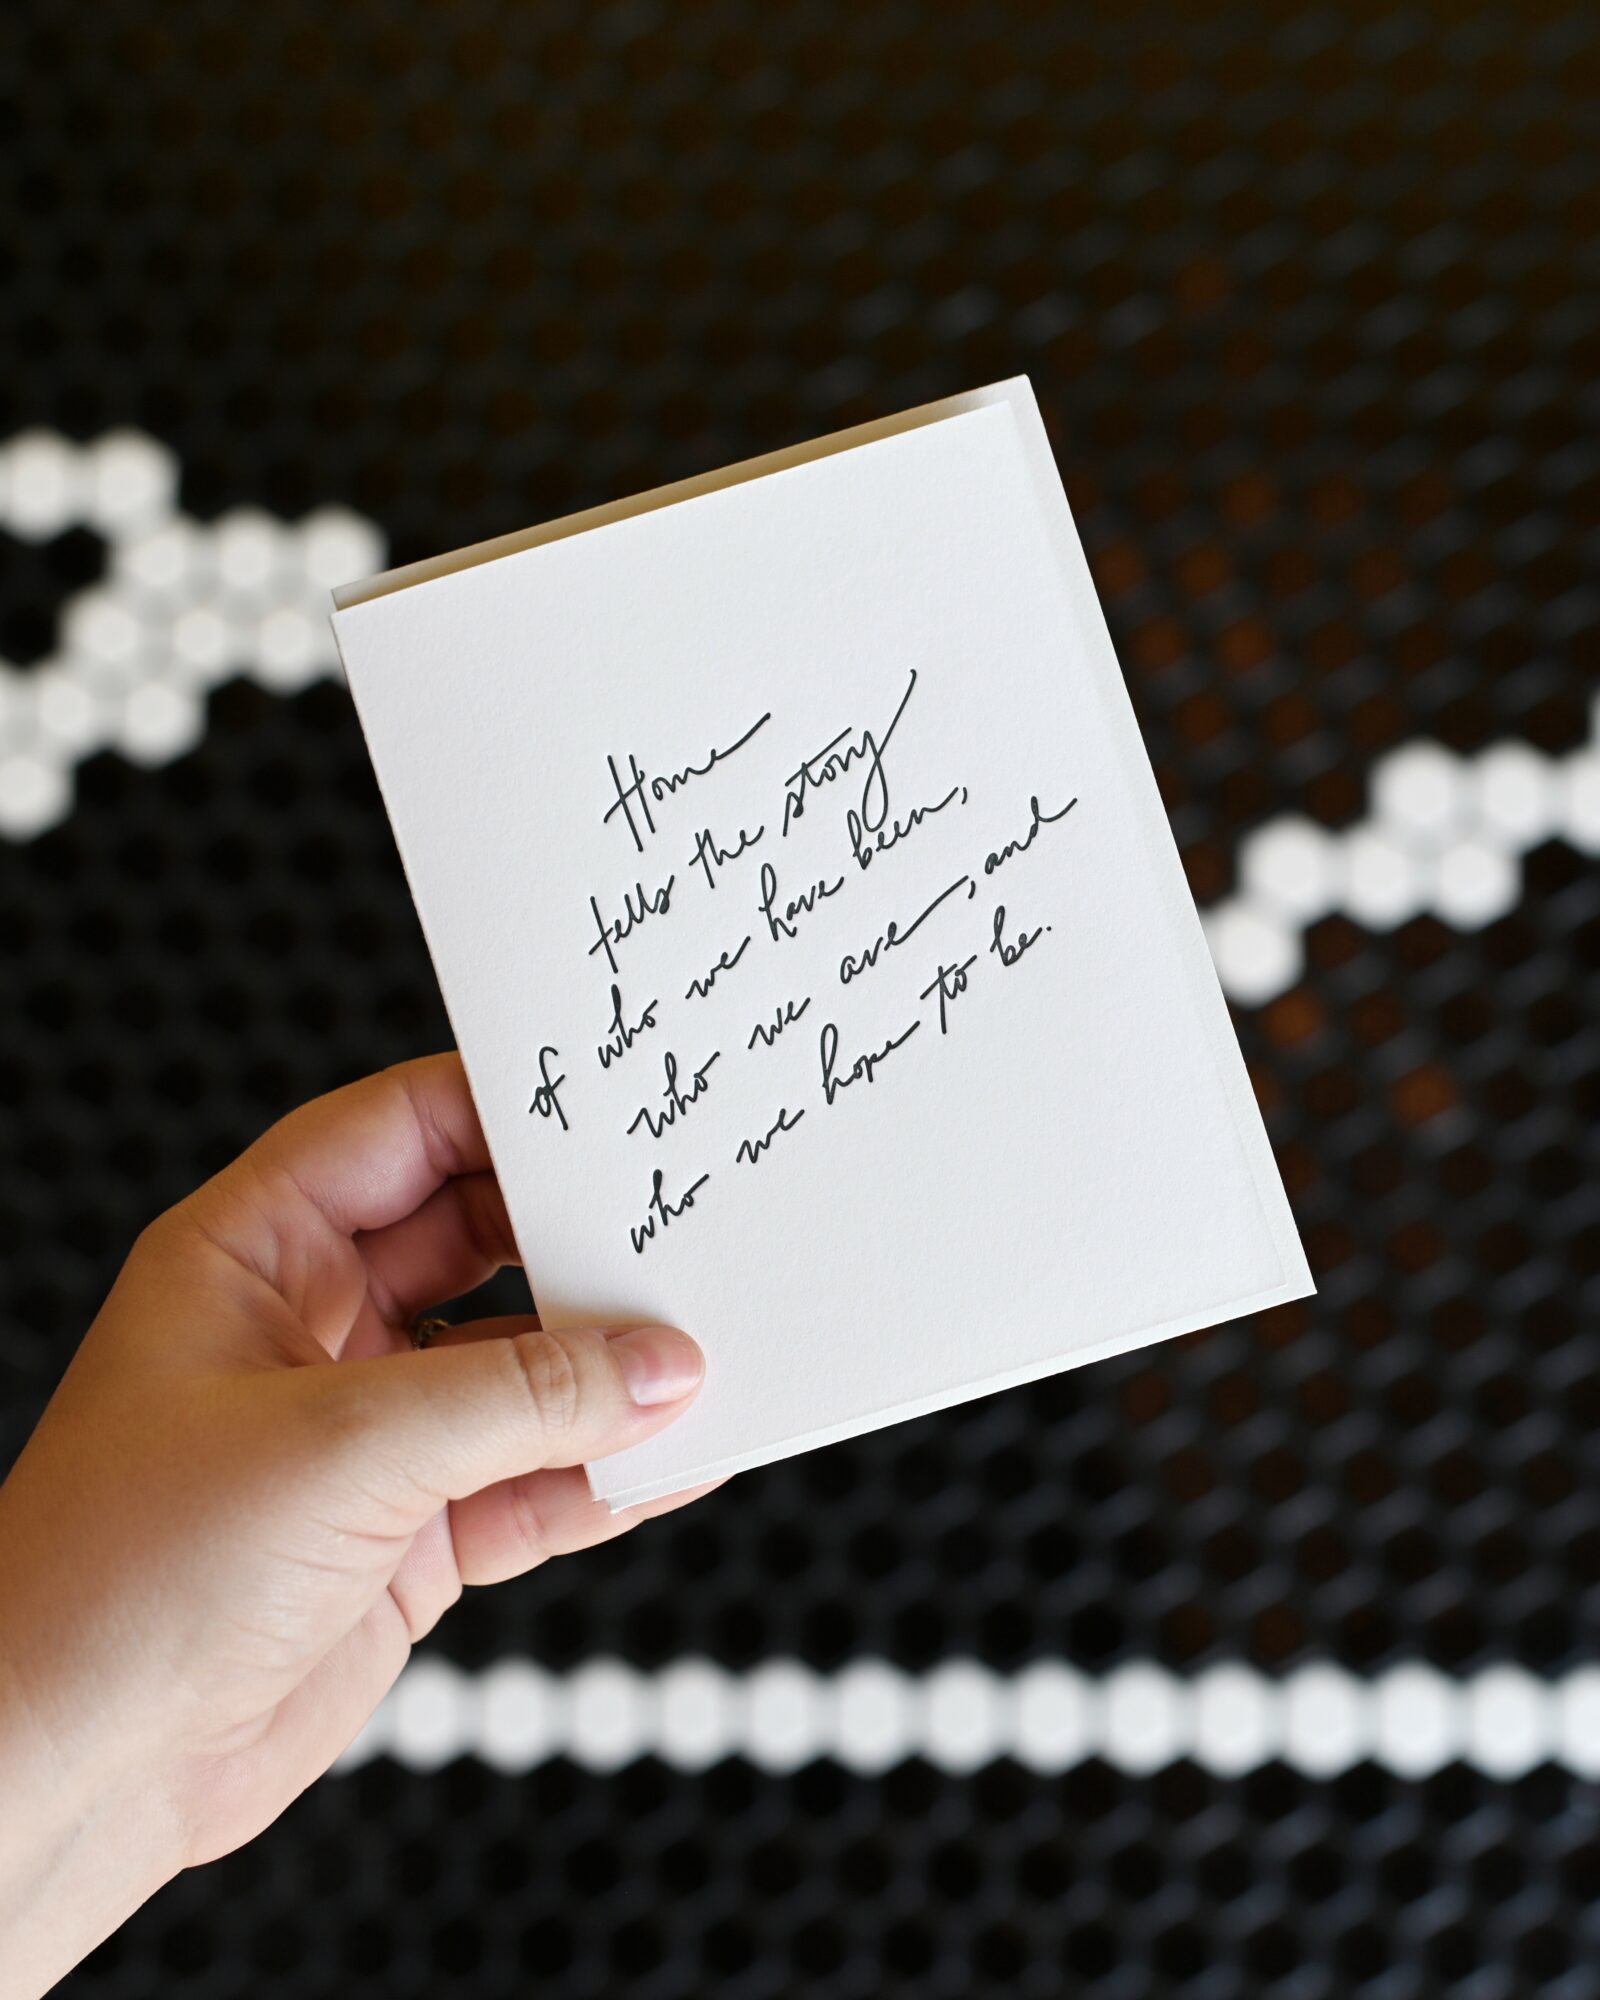 Home
tells the story
of who we have been,
who we are, and
who we hope to be.